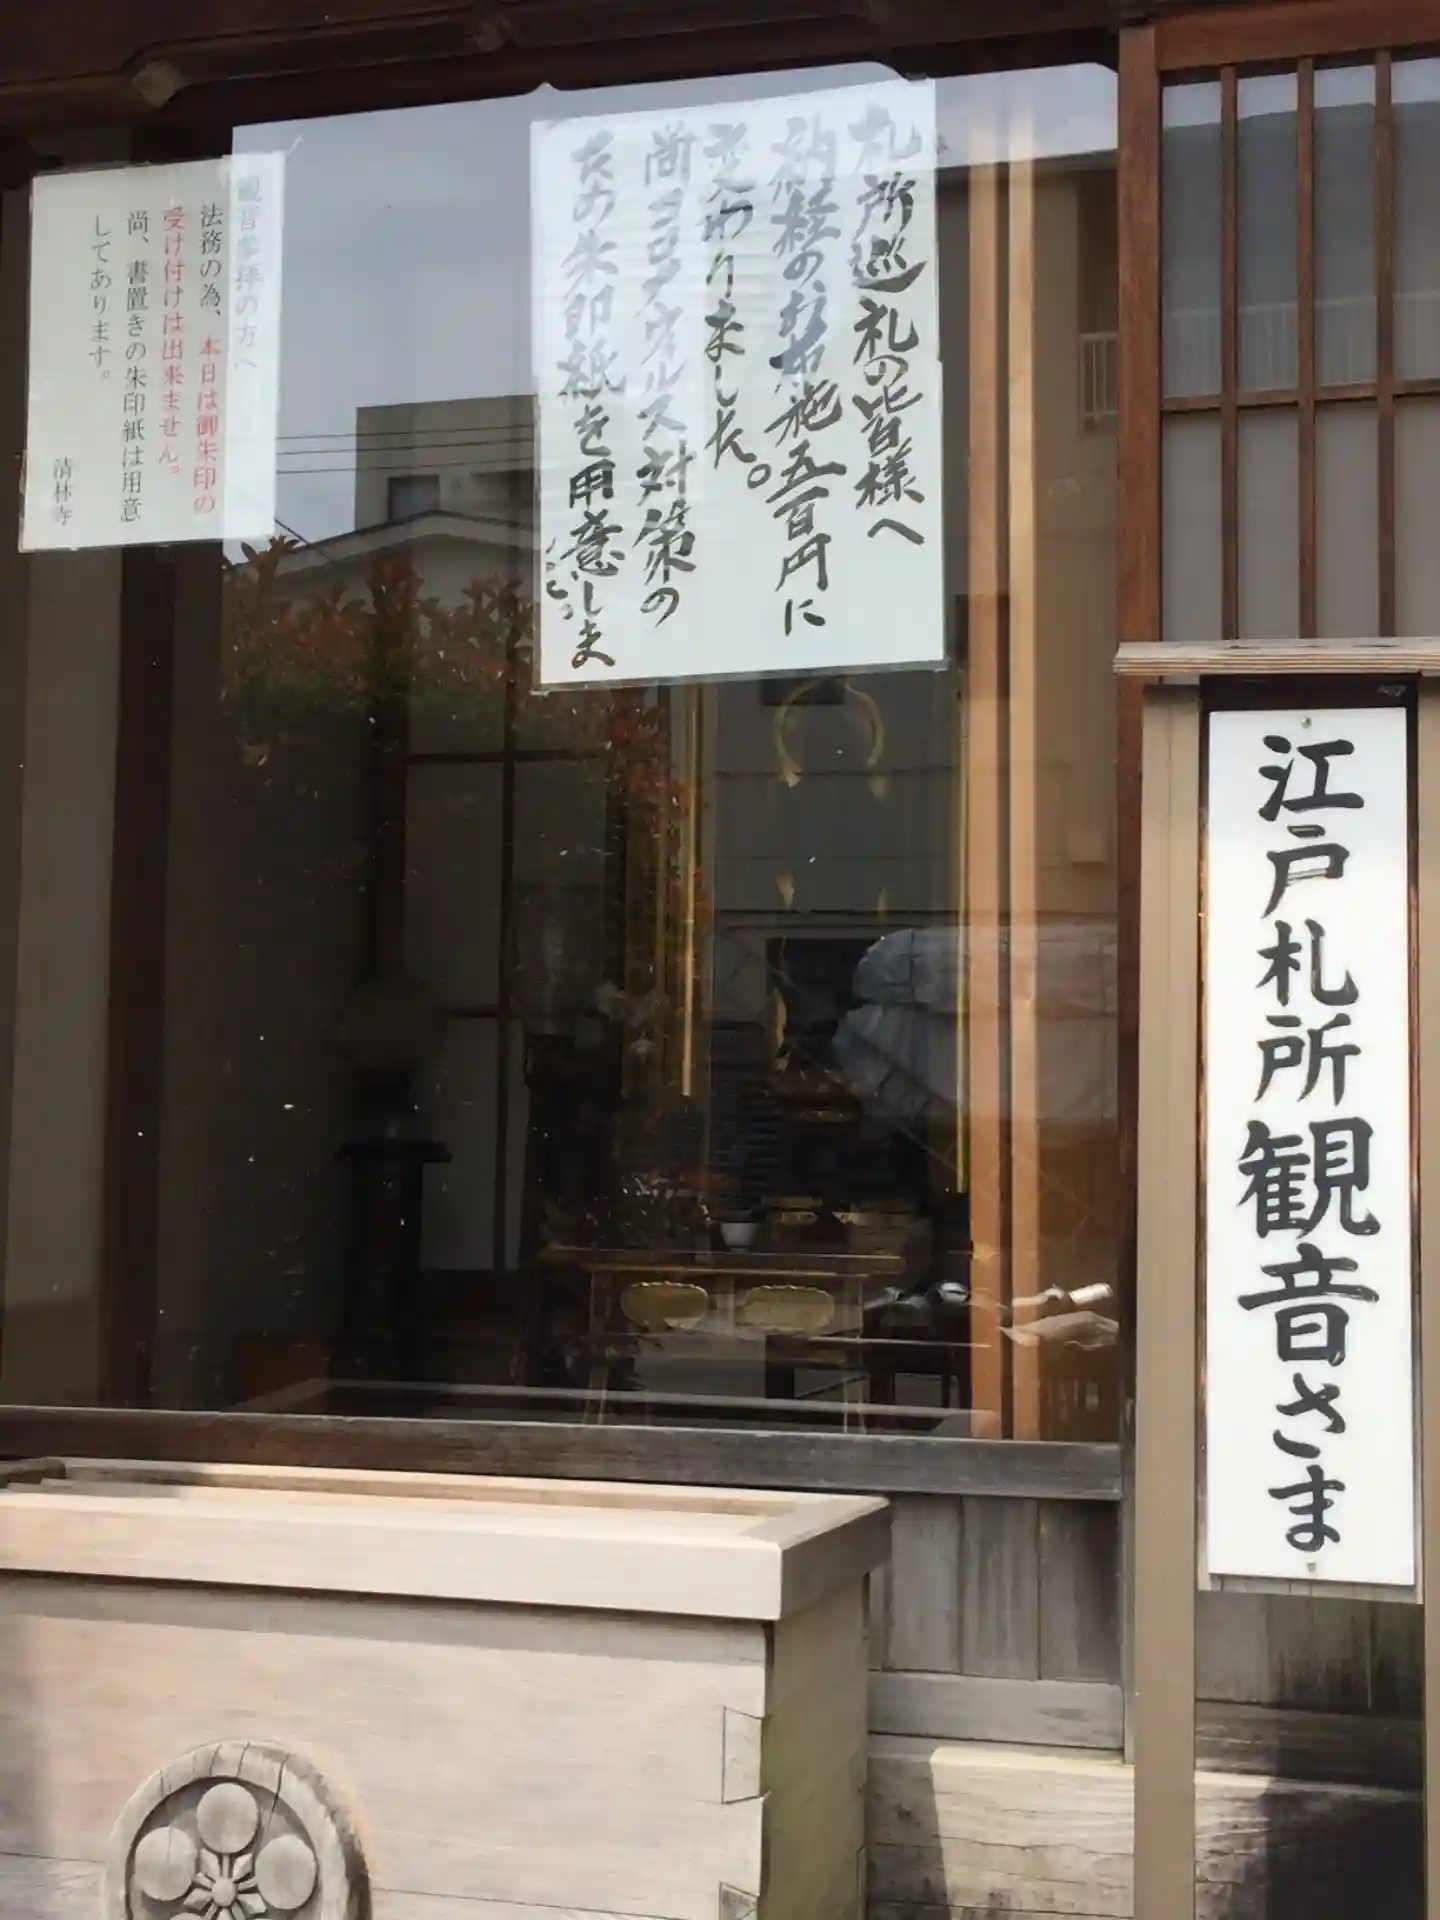 札所巡礼の皆様へ
納経のお布施五百円に
変わりました。
尚コロナウィルス対策の
ため朱印紙を用意しま
観音参拝の方へ
法務の為、本日は御朱印の
受け付けは出来ません。
尚、書置きの朱印紙は用意
してあります。
清林寺
江戸札所観音さま